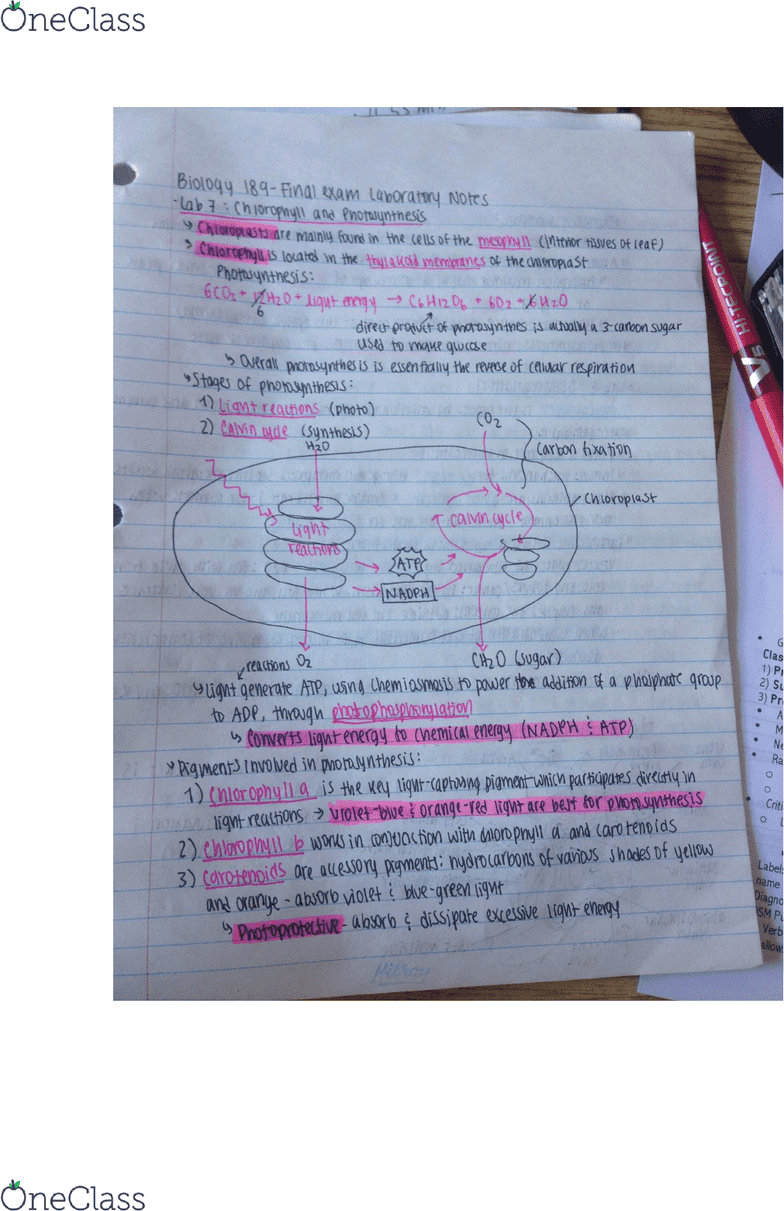 OneClass
Biology 189 - Final exam Laboratory Notes
- Lab 7: Chlorophyll and Photosynthesis
↳ Chloroplasts are mainly found in the cells of the mesophyll (interior tissues of leaf)
↳ Chlorophyll is located in the thylakoid membranes of the chloroplast
Photosynthesis:
6CO2 + 12H2O + light energy → C6H12O6 + 6O2 + 6H2O
6
direct product of photosynthes is actually a 3-carbon sugar
used to make glucose
↳ Overall photosynthesis is essentially the reverse of cellular respiration
↳ Stages of photosynthesis:
1) Light reactions (photo)
2) Calvin cycle (synthesis)
H2O
CO2
Carbon fixation
Chloroplast
Light
reactions
Calvin cycle
ATP
NADPH
O2
CH2O (sugar)
reactions
↳ Light generate ATP, using chemiasmosis to power the addition of a phosphate group
to ADP, through photophosphorylation
↳ Converts light energy to chemical energy (NADPH & ATP)
↳ Pigments involved in photosynthesis:
1) Chlorophyll a is the key light-capturing pigment which participates directly in
light reactions → violet-blue & orange-red light are best for photosynthesis
2) Chlorophyll b works in conjunction with chlorophyll a and carotenoids
3) Carotenoids are accessory pigments: hydrocarbons of various shades of yellow
and orange - absorb violet & blue-green light
↳ Photoprotective - absorb & dissipate excessive light energy
HI-TECPOINT
V5
Clas
1) P
2) Su
3) Pr
Ra
Criti
Labels
name
Diagno
DSM P
Verb
allow
OneClass